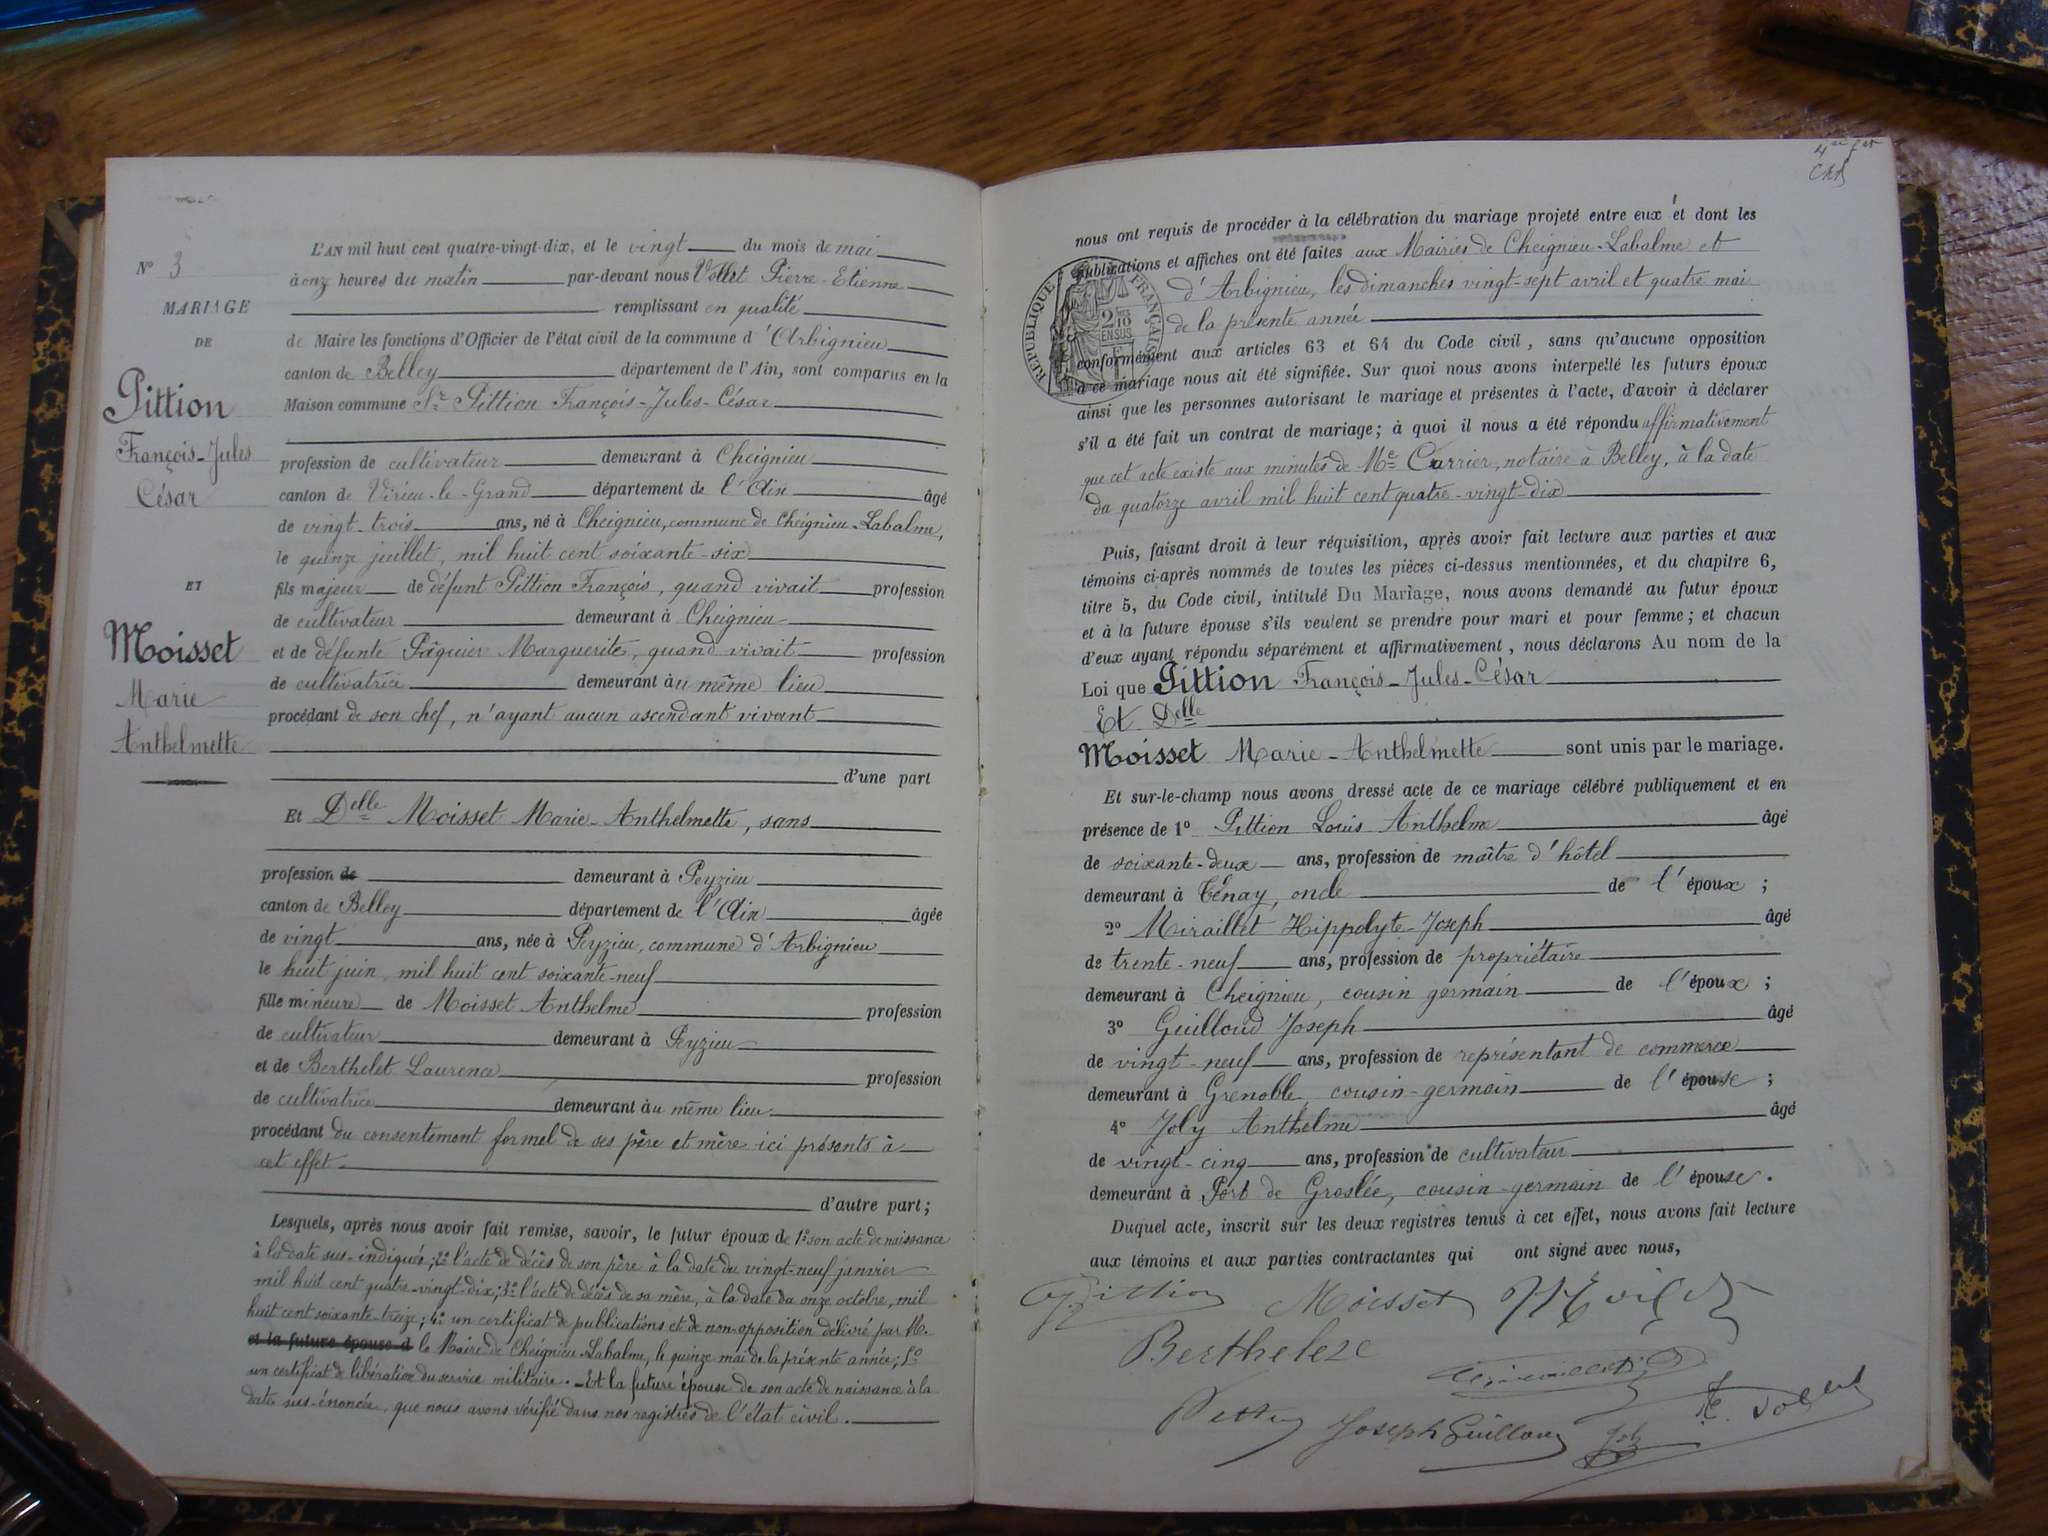 N° 3
MARIAGE
DE
Pittion
François-Jules
César
ET
Moisset
Marie
Anthelmette
L'AN mil huit cent quatre-vingt-dix, et le vingt du mois de mai
à onze heures du matin par-devant nous Vollet Pierre-Etienne
remplissant en qualité
de Maire les fonctions d'Officier de l'état civil de la commune d'Arbignieu
canton de Belley département de l'Ain, sont comparus en la
Maison commune Sr Pittion François-Jules-César
profession de cultivateur demeurant à Cheignieu
canton de Virieu-le-Grand département de l'Ain âgé
de vingt-trois ans, né à Cheignieu, commune de Cheignieu-Labalme,
le quinze juillet, mil huit cent soixante-six
fils majeur de défunt Pittion François, quand vivait profession
de cultivateur demeurant à Cheignieu
et de défunte Pâquier Marguerite, quand vivait profession
de cultivatrice demeurant au même lieu
procédant de son chef, n'ayant aucun ascendant vivant
d'une part
Et Delle Moisset Marie-Anthelmette, sans
profession de demeurant à Peyzieu
canton de Belley département de l'Ain âgée
de vingt ans, née à Peyzieu, commune d'Arbignieu
le huit juin, mil huit cent soixante-neuf
fille mineure de Moisset Anthelme profession
de cultivateur demeurant à Peyzieu
et de Berthelet Laurence profession
de cultivatrice demeurant au même lieu
procédant du consentement formel de ses père et mère ici présents à
cet effet
d'autre part;
Lesquels, après nous avoir fait remise, savoir, le futur époux de 1° son acte de naissance
à la date sus-indiquée; 2° l'acte de décès de son père à la date du vingt-neuf janvier
mil huit cent quatre-vingt-dix; 3° l'acte de décès de sa mère, à la date du onze octobre, mil
huit cent soixante-treize; 4° un certificat de publications et de non-opposition délivré par M.
et la future épouse d le Maire de Cheignieu-Labalme, le quinze mai de la présente année; 5°
un certificat de libération du service militaire. - Et la future épouse de son acte de naissance à la
date sus-énoncée, que nous avons vérifié dans nos registres de l'état civil.
nous ont requis de procéder à la célébration du mariage projeté entre eux et dont les
publications et affiches ont été faites aux Mairies de Cheignieu-Labalme et
d'Arbignieu, les dimanches vingt-sept avril et quatre mai
de la présente année
RÉPUBLIQUE FRANÇAISE
2/10
EN SUS
conformément aux articles 63 et 64 du Code civil, sans qu'aucune opposition
à ce mariage nous ait été signifiée. Sur quoi nous avons interpellé les futurs époux
ainsi que les personnes autorisant le mariage et présentes à l'acte, d'avoir à déclarer
s'il a été fait un contrat de mariage; à quoi il nous a été répondu affirmativement
que cet acte existe aux minutes de Me Carrier, notaire à Belley, à la date
du quatorze avril mil huit cent quatre-vingt-dix
Puis, faisant droit à leur réquisition, après avoir fait lecture aux parties et aux
témoins ci-après nommés de toutes les pièces ci-dessus mentionnées, et du chapitre 6,
titre 5, du Code civil, intitulé Du Mariage, nous avons demandé au futur époux
et à la future épouse s'ils veulent se prendre pour mari et pour femme; et chacun
d'eux ayant répondu séparément et affirmativement, nous déclarons Au nom de la
Loi que Pittion François-Jules-César
Et Delle
Moisset Marie-Anthelmette sont unis par le mariage.
Et sur-le-champ nous avons dressé acte de ce mariage célébré publiquement et en
présence de 1° Pittion Louis Anthelme âgé
de soixante-deux ans, profession de maître d'hôtel
demeurant à Tenay, oncle de l'époux;
2° Miraillet Hippolyte-Joseph âgé
de trente-neuf ans, profession de propriétaire
demeurant à Cheignieu, cousin germain de l'époux;
3° Guilloud Joseph âgé
de vingt-neuf ans, profession de représentant de commerce
demeurant à Grenoble, cousin-germain de l'épouse;
4° Joly Anthelme âgé
de vingt-cinq ans, profession de cultivateur
demeurant à Port de Groslée, cousin-germain de l'épouse.
Duquel acte, inscrit sur les deux registres tenus à cet effet, nous avons fait lecture
aux témoins et aux parties contractantes qui ont signé avec nous,
Pittion Moisset
Joseph Guilloud